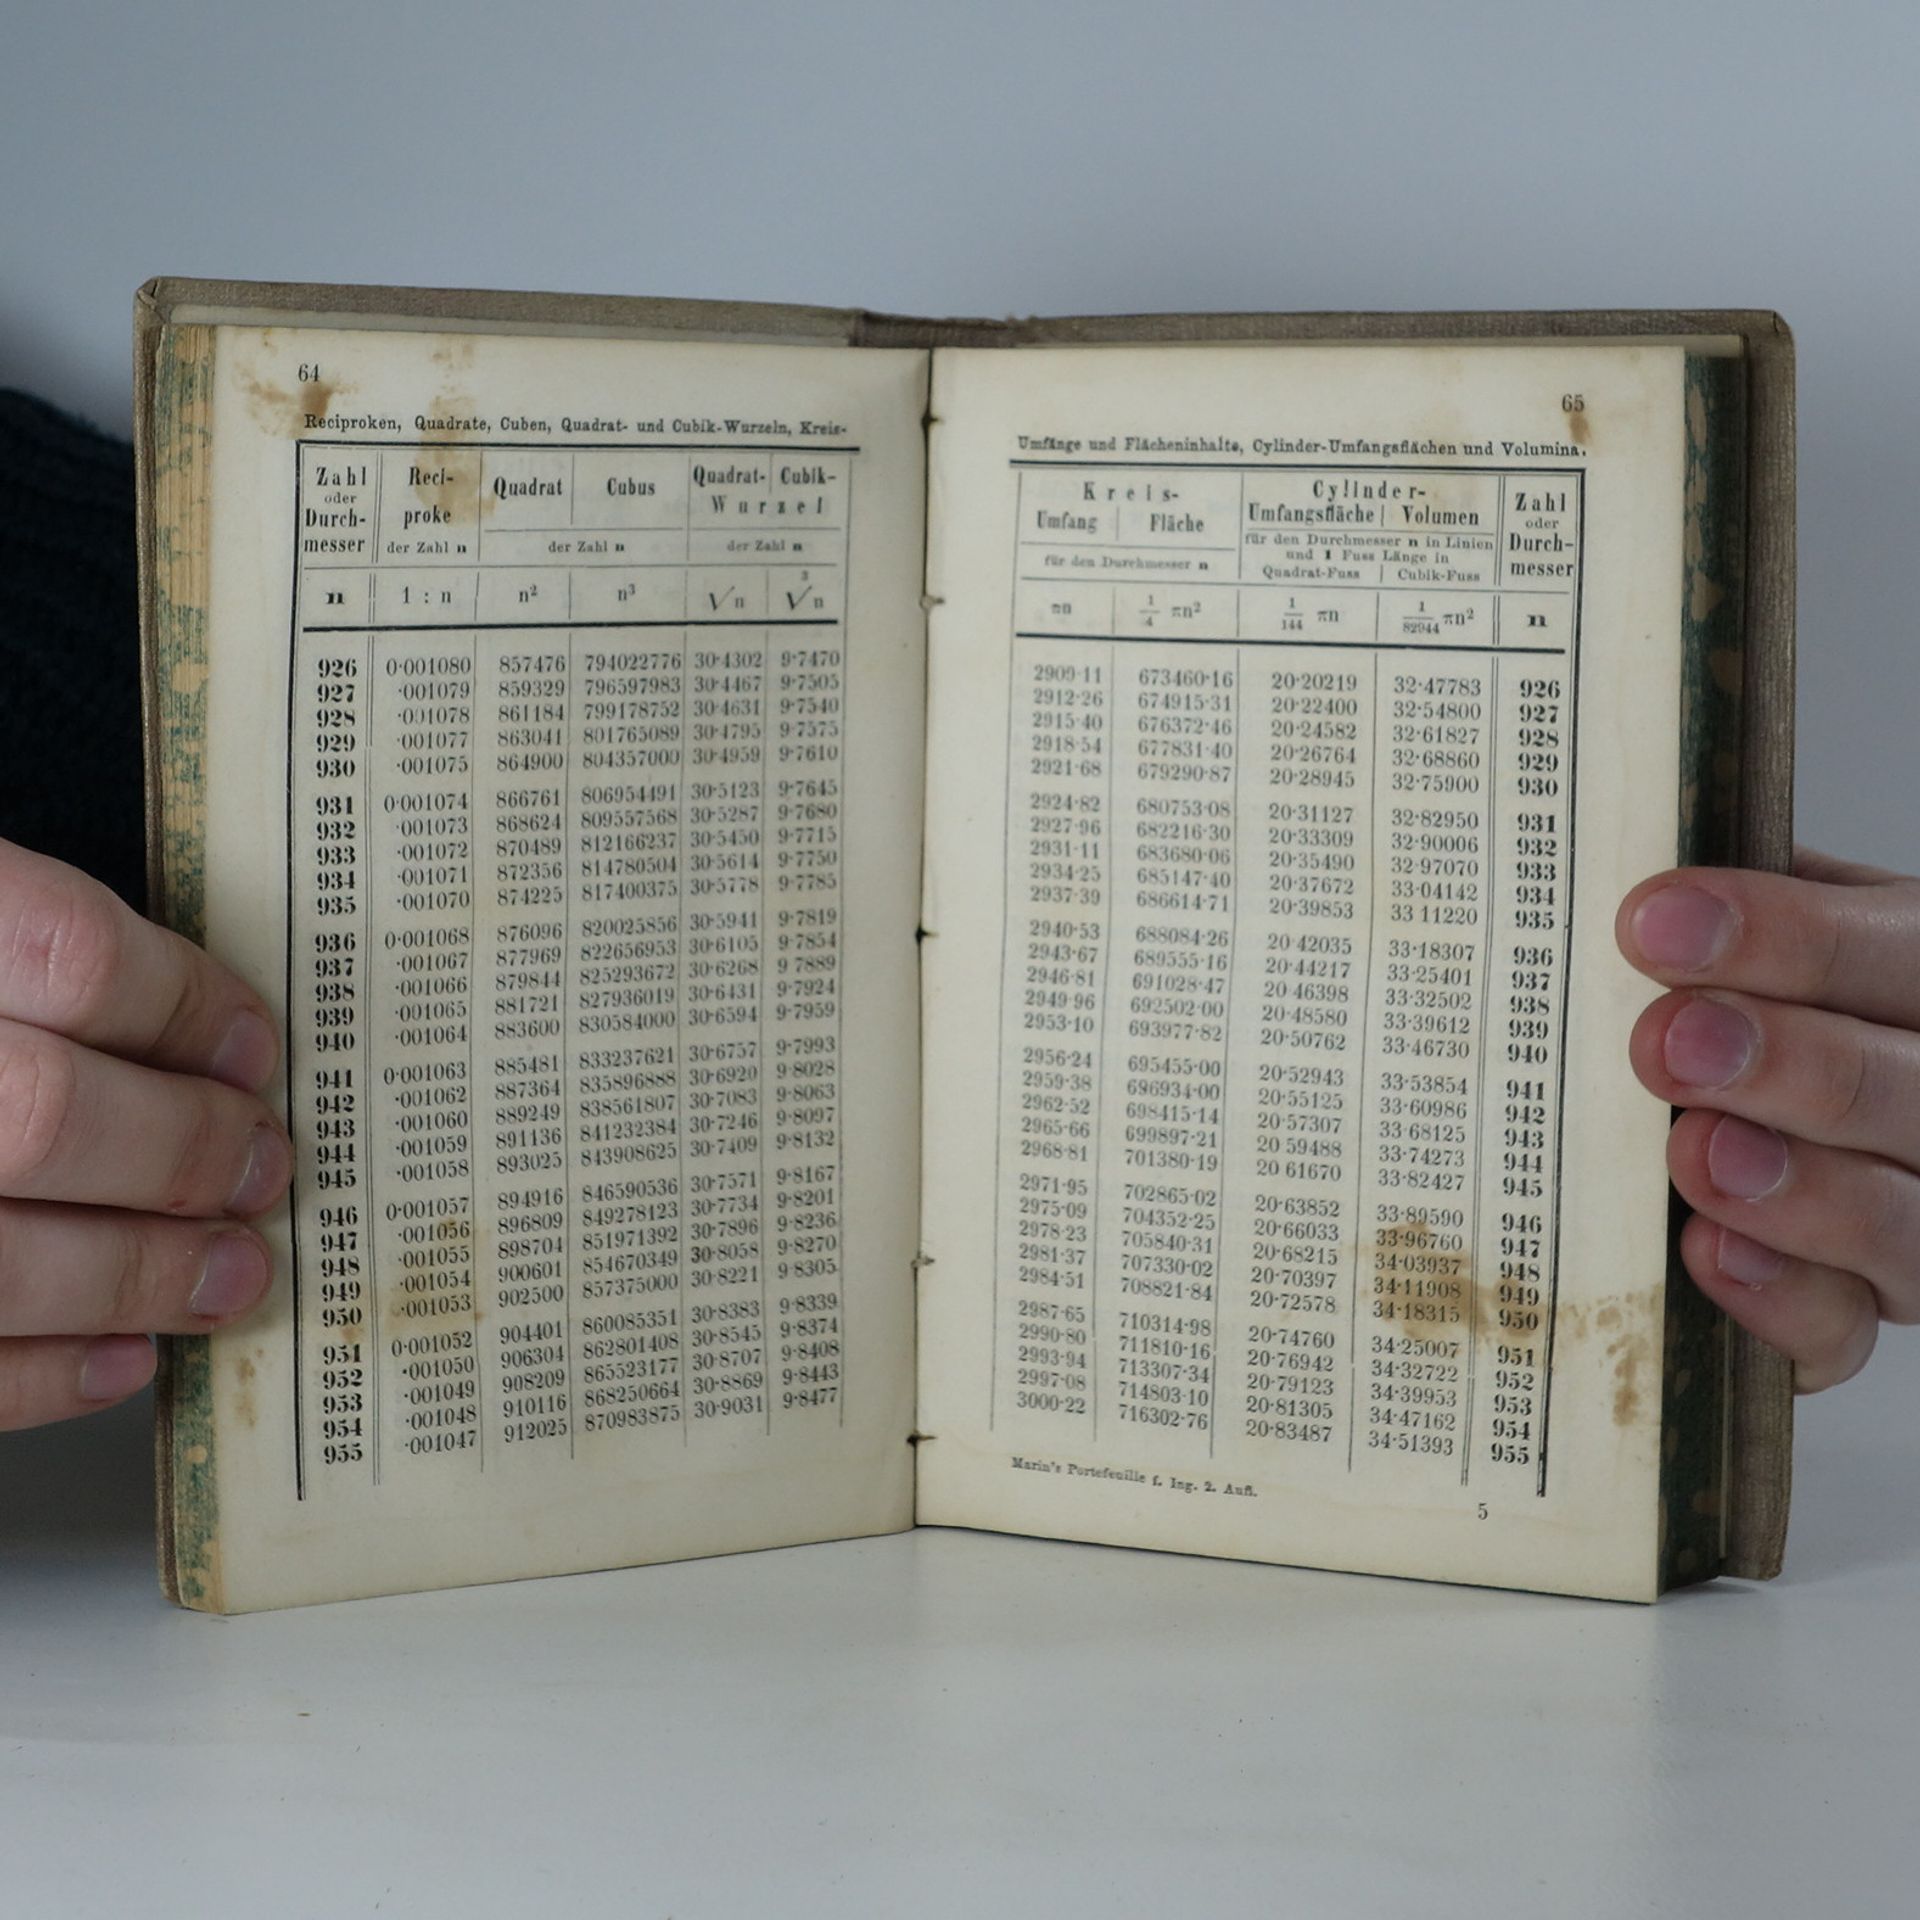 64
Reciproken, Quadrate, Cuben, Quadrat- und Cubik-Wurzeln, Kreis-
Zahl oder Durch-messer | Reci-proke | Quadrat | Cubus | Quadrat- Cubik-
Wurzel
der Zahl n | der Zahl n | der Zahl n
n | 1 : n | n² | n³ | √n | ∛n
926 0·001080 857476 794022776 30·4302 9·7470
927 ·001079 859329 796597983 30·4467 9·7505
928 ·001078 861184 799178752 30·4631 9·7540
929 ·001077 863041 801765089 30·4795 9·7575
930 ·001075 864900 804357000 30·4959 9·7610
931 0·001074 866761 806954491 30·5123 9·7645
932 ·001073 868624 809557568 30·5287 9·7680
933 ·001072 870489 812166237 30·5450 9·7715
934 ·001071 872356 814780504 30·5614 9·7750
935 ·001070 874225 817400375 30·5778 9·7785
936 0·001068 876096 820025856 30·5941 9·7819
937 ·001067 877969 822656953 30·6105 9·7854
938 ·001066 879844 825293672 30·6268 9 7889
939 ·001065 881721 827936019 30·6431 9·7924
940 ·001064 883600 830584000 30·6594 9·7959
941 0·001063 885481 833237621 30·6757 9·7993
942 ·001062 887364 835896888 30·6920 9·8028
943 ·001060 889249 838561807 30·7083 9·8063
944 ·001059 891136 841232384 30·7246 9·8097
945 ·001058 893025 843908625 30·7409 9·8132
946 0·001057 894916 846590536 30·7571 9·8167
947 ·001056 896809 849278123 30·7734 9·8201
948 ·001055 898704 851971392 30·7896 9·8236
949 ·001054 900601 854670349 30·8058 9·8270
950 ·001053 902500 857375000 30·8221 9·8305
951 0·001052 904401 860085351 30·8383 9·8339
952 ·001050 906304 862801408 30·8545 9·8374
953 ·001049 908209 865523177 30·8707 9·8408
954 ·001048 910116 868250664 30·8869 9·8443
955 ·001047 912025 870983875 30·9031 9·8477
65
Umfänge und Flächeninhalte, Cylinder-Umfangsflächen und Volumina.
Kreis- | Cylinder- | Zahl
Umfang | Fläche | Umfangsfläche | Volumen | oder
für den Durchmesser n in Linien | Durch-
und 1 Fuss Länge in | messer
für den Durchmesser n | Quadrat-Fuss | Cubik-Fuss
πn | 1/4 πn² | 1/144 πn | 1/82944 πn² | n
2909·11 673460·16 20·20219 32·47783 926
2912·26 674915·31 20·22400 32·54800 927
2915·40 676372·46 20·24582 32·61827 928
2918·54 677831·40 20·26764 32·68860 929
2921·68 679290·87 20·28945 32·75900 930
2924·82 680753·08 20·31127 32·82950 931
2927·96 682216·30 20·33309 32·90006 932
2931·11 683680·06 20·35490 32·97070 933
2934·25 685147·40 20·37672 33·04142 934
2937·39 686614·71 20·39853 33 11220 935
2940·53 688084·26 20 42035 33·18307 936
2943·67 689555·16 20·44217 33·25401 937
2946·81 691028·47 20 46398 33·32502 938
2949·96 692502·00 20·48580 33·39612 939
2953·10 693977·82 20·50762 33·46730 940
2956·24 695455·00 20·52943 33·53854 941
2959·38 696934·00 20·55125 33·60986 942
2962·52 698415·14 20·57307 33 68125 943
2965·66 699897·21 20 59488 33·74273 944
2968·81 701380·19 20 61670 33·82427 945
2971·95 702865·02 20·63852 33·89590 946
2975·09 704352·25 20·66033 33·96760 947
2978·23 705840·31 20·68215 34·03937 948
2981·37 707330·02 20·70397 34·11908 949
2984·51 708821·84 20·72578 34·18315 950
2987·65 710314·98 20·74760 34·25007 951
2990·80 711810·16 20·76942 34·32722 952
2993·94 713307·34 20·79123 34·39953 953
2997·08 714803·10 20·81305 34·47162 954
3000·22 716302·76 20·83487 34·51393 955
Marin's Portefeuille f. Ing. 2. Aufl.
5